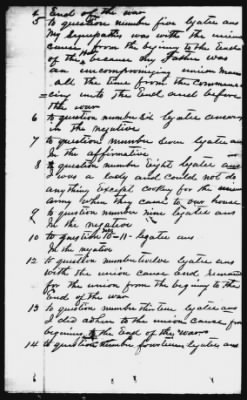 4 End of the war
5 to question number five lyatee ans
My sympathy was with the union
cause from the begining to the End
of the war because my Father was
an uncompromising union man
all the time from the Commence
=cing unto the End and before
the war
6 to question number six lyatee answers
in the negative
7 to question number seven lyatee ans
In the affirmative
8 to question number Eight lyatee ans
I was a lady and could not do
anything Except cooking for the union
army when they came to our house
9 to question number nine lyatee ans
In the negative
10 to question No-11- lyatee ans
In the negative
12 to question number twelve lyatee ans
with the union cause and remained
for the union from the beging to the
End of the war
13 to question number thirteen lyatee ans
I did adher to the union cause from
begining to the End of the war
14 to question number fourteen lyatee ans